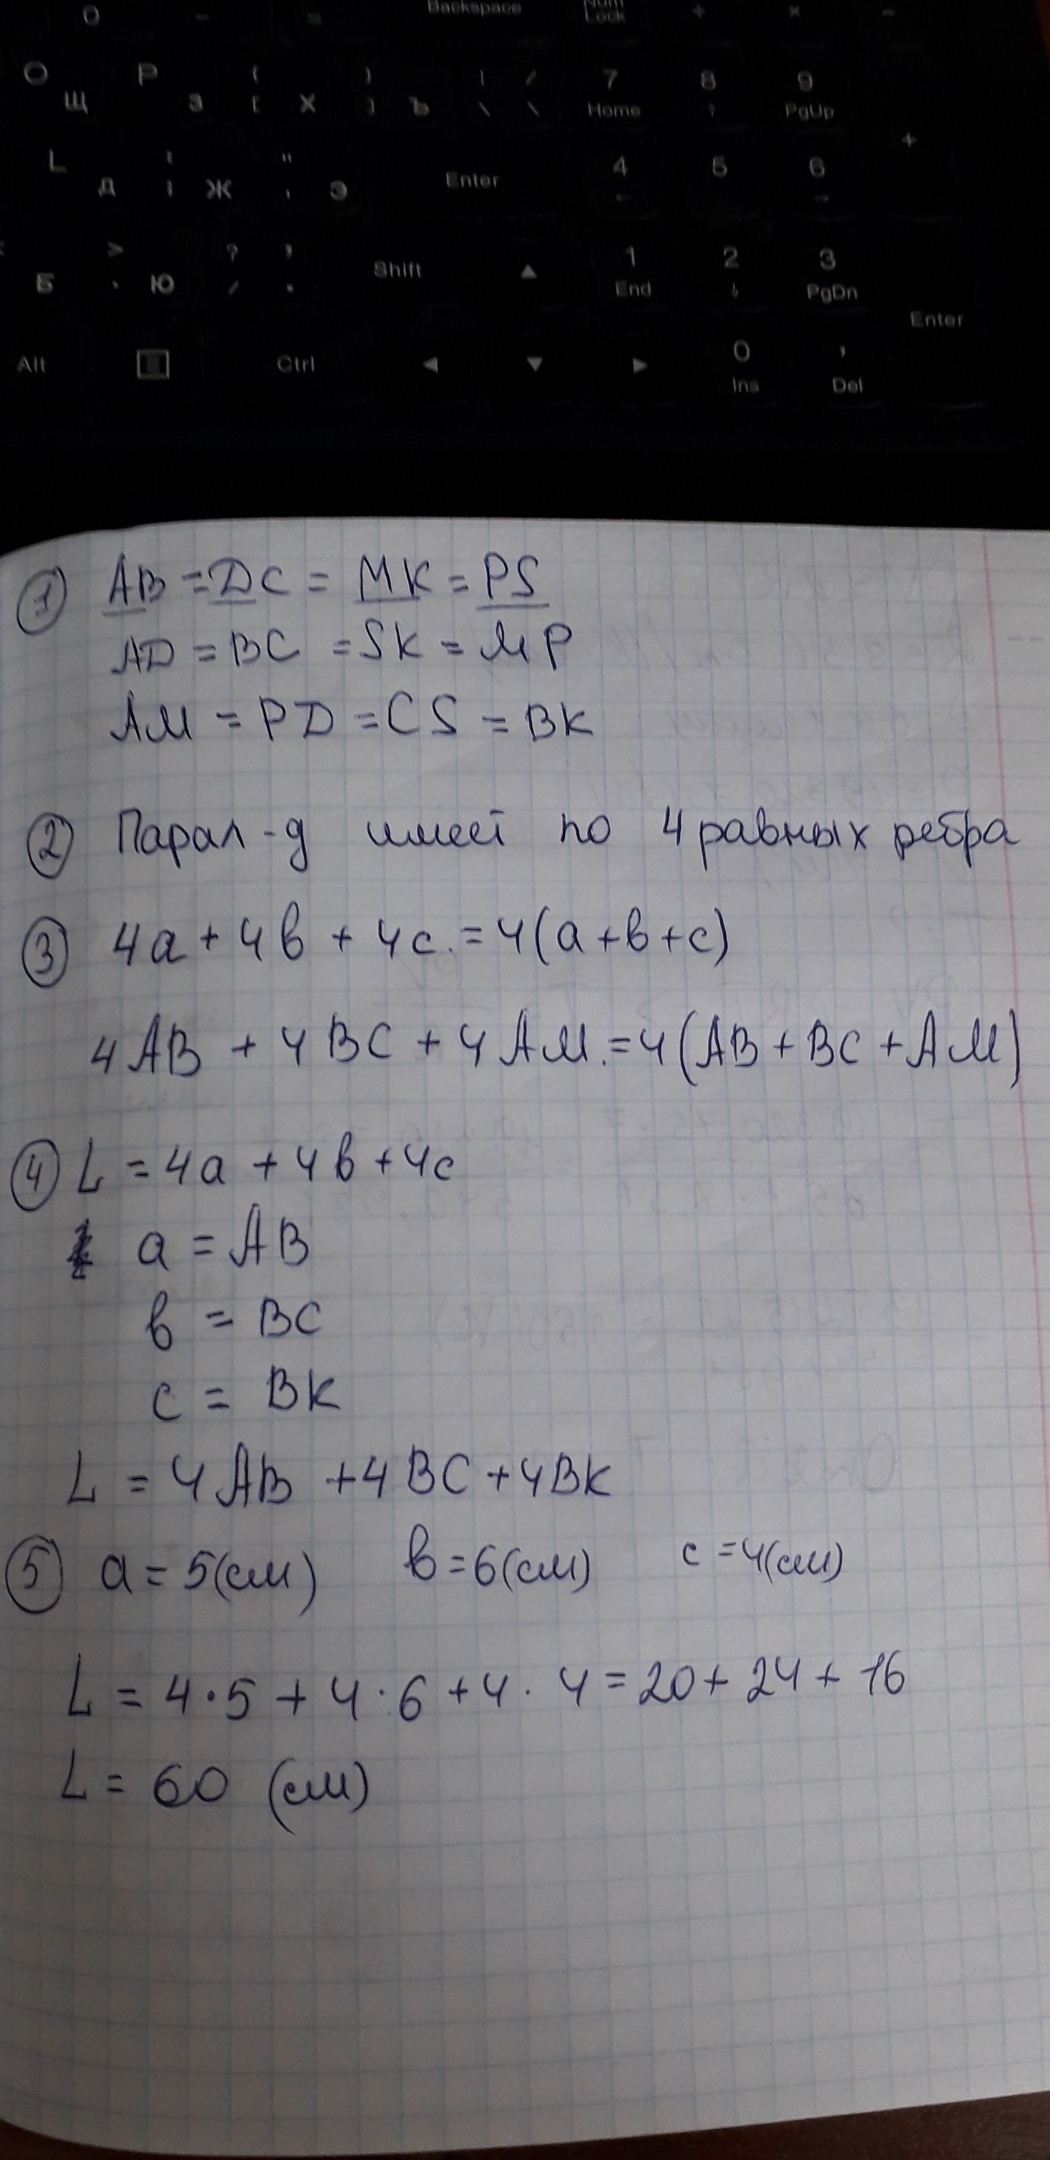 O - = Backspace Num Lock ÷ × -
O Щ P З { [ Х } ] Ъ | \ / \ 7 Home 8 ↑ 9 PgUp +
L Д : ; Ж " ' Э Enter 4 ← 5 6 →
< Б > . Ю ? / , . Shift ▲ 1 End 2 ↓ 3 PgDn Enter
Alt Ctrl ◄ ▼ ► 0 Ins , Del
① AB = DC = MK = PS
AD = BC = SK = MP
AM = PD = CS = BK
② Парал-д имеет по 4 равных ребра
③ 4a + 4в + 4c = 4(a+в+c)
4AB + 4BC + 4AM = 4(AB + BC + AM)
④ L = 4a + 4в + 4c
a = AB
в = BC
c = BK
L = 4AB + 4BC + 4BK
⑤ a = 5(см) в = 6(см) c = 4(см)
L = 4·5 + 4·6 + 4·4 = 20 + 24 + 16
L = 60 (см)